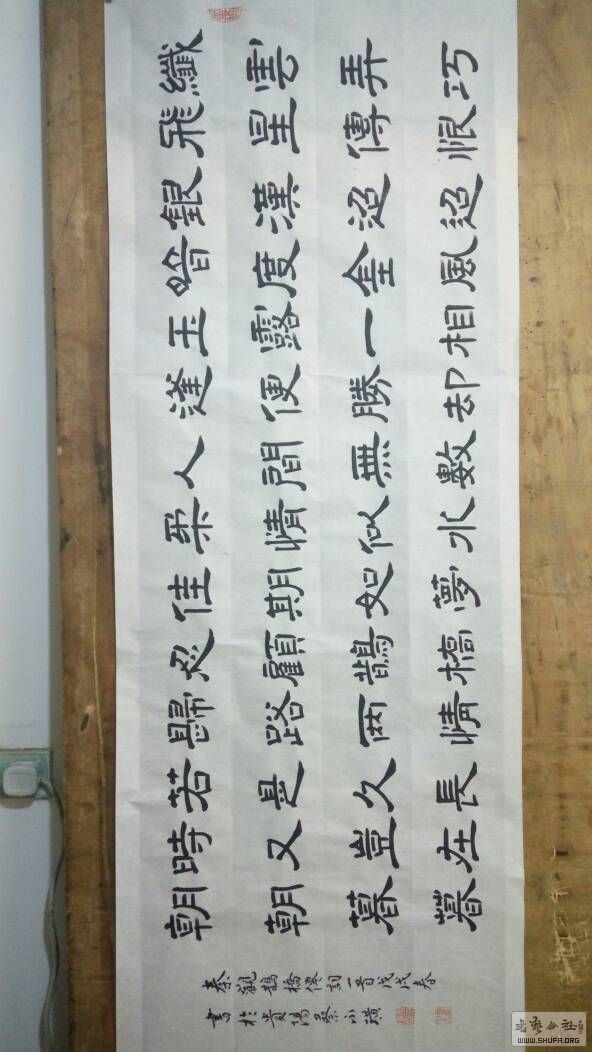 纖雲弄巧
飛星傳恨
銀漢迢迢
暗度金風
玉露一相
逢便勝却
人間無數
柔情似水
佳期如夢
忍顧鵲橋
歸路兩情
若是久長
時又豈在
朝朝暮暮
秦觀鵲橋僊詞一首戊戌春
書於貴陽蔡
書藝公社
WWW.SHUFA.ORG